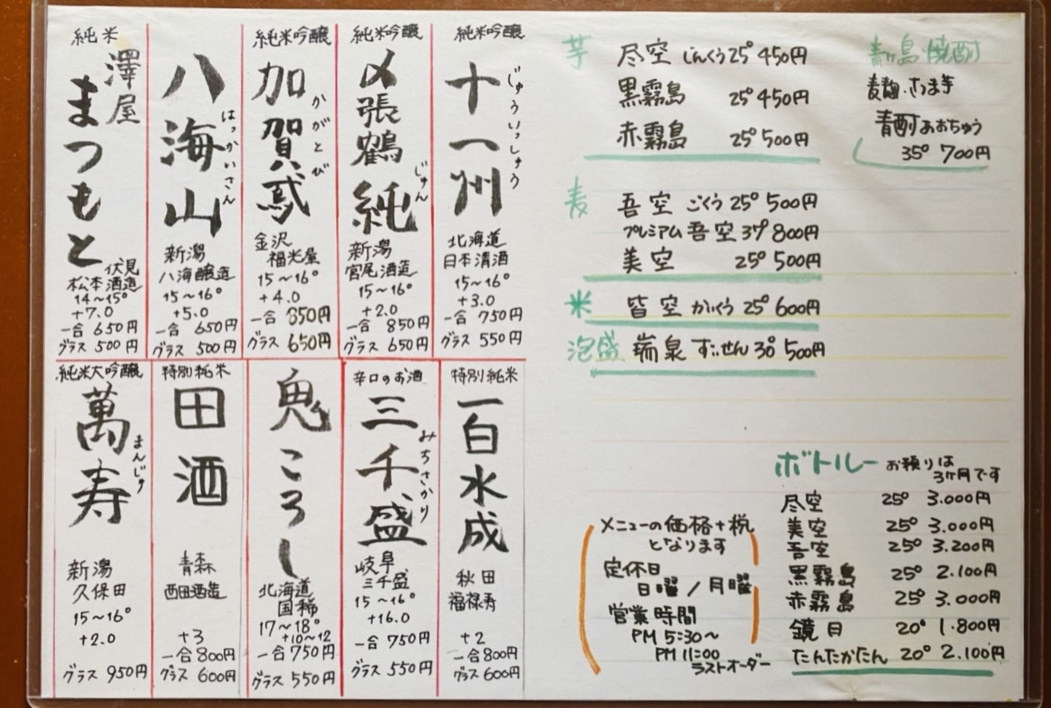 純米吟醸
十一州
じゅういっしゅう
北海道
日本清酒
15〜16°
+3.0
一合 750円
グラス 550円
純米吟醸
〆張鶴 純
じゅん
新潟
宮尾酒造
15〜16°
+2.0
一合 850円
グラス 650円
純米吟醸
加賀鳶
かがとび
金沢
福光屋
15〜16°
+4.0
一合 850円
グラス 650円
八海山
はっかいさん
新潟
八海醸造
15〜16°
+5.0
一合 650円
グラス 500円
純米
澤屋
まつもと
伏見
松本酒造
14〜15°
+7.0
一合 650円
グラス 500円
特別純米
一白水成
秋田
福禄寿
+2
一合 800円
グラス 600円
辛口のお酒
三千盛
みちさかり
岐阜
三千盛
15〜16°
+16.0
一合 750円
グラス 550円
鬼ころし
北海道
国稀
17〜18°
+10〜12
一合 750円
グラス 550円
特別純米
田酒
青森
西田酒造
+3
一合 800円
グラス 600円
純米大吟醸
萬寿
まんじゅ
新潟
久保田
15〜16°
+2.0
グラス 950円
芋 尽空 じんくう 25° 450円
黒霧島 25° 450円
赤霧島 25° 500円
麦 吾空 ごくう 25° 500円
プレミアム 吾空 37° 800円
美空 25° 500円
米 皆空 かいくう 25° 600円
泡盛 瑞泉 ずいせん 30° 500円
青ヶ島 焼酎
麦麹・さつま芋
青酎 あおちゅう
35° 700円
ボトルー お預りは
3ヶ月です
尽空 25° 3.000円
美空 25° 3.000円
吾空 25° 3.200円
黒霧島 25° 2.100円
赤霧島 25° 3.000円
鏡月 20° 1.800円
たんたかたん 20° 2.100円
メニューの価格+税
となります
定休日
日曜/月曜
営業時間
PM 5:30〜
PM 11:00
ラストオーダー